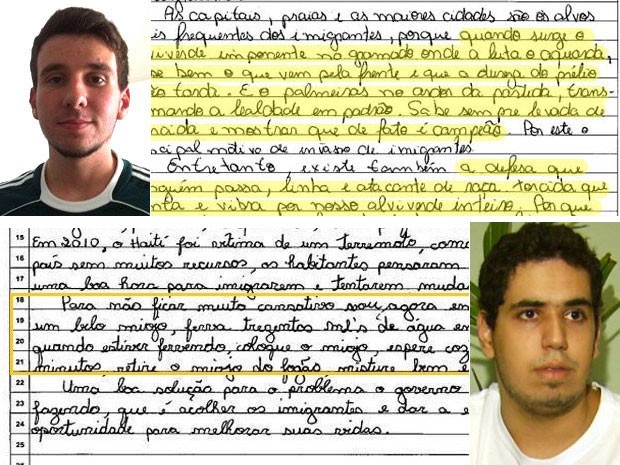 As capitais, praias e as maiores cidades são os alvos
is frequentes dos imigrantes, porque quando surge o
viverde imponente no gramado onde a luta o aguarda,
be bem o que vem pela frente e que a dureza do prélio
ão tarda. E o palmeiras no ardor da partida, trans-
mando a lealdade em padrão. Sabe sempre levada de
ncida e mostrar que de fato é campeão. Por este o
cipal motivo de invasão de imigrantes
Entretanto, existe também a defesa que
nguém passa, linha e atacante de raça. torcida que
nta e vibra por nosso alviverde inteiro. Porque
15 Em 2010, o Haiti foi vitima de um terremoto, como
16 país sem muitos recursos, os habitantes pensaram
17 uma boa hora para imigrarem e tentarem muda
18 Para não ficar muito cansativo vou agora en
19 um belo miojo, ferva trezentos ml's de água em
20 quando estiver fervendo, coloque o miojo, espere coz
21 minutos, retire o miojo do fogão, misture bem e
22 Uma boa solução para o problema o governo
23 fazendo, que é acolher os imigrantes e dar a e
24 oportunidade para melhorar suas vidas.
25
26